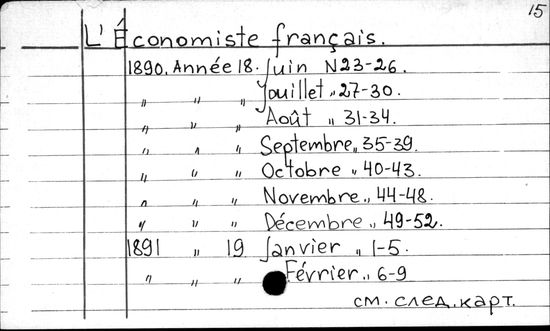 15
L'Économiste français.
1890. Année 18. Juin N23-26.
" " " Jouillet " 27-30.
" " " Août " 31-34.
" " " Septembre " 35-39.
" " " Octobre " 40-43.
" " " Novembre " 44-48.
" " " Décembre " 49-52.
1891 " 19 Janvier " 1-5.
" " " Février " 6-9
см. след. карт.